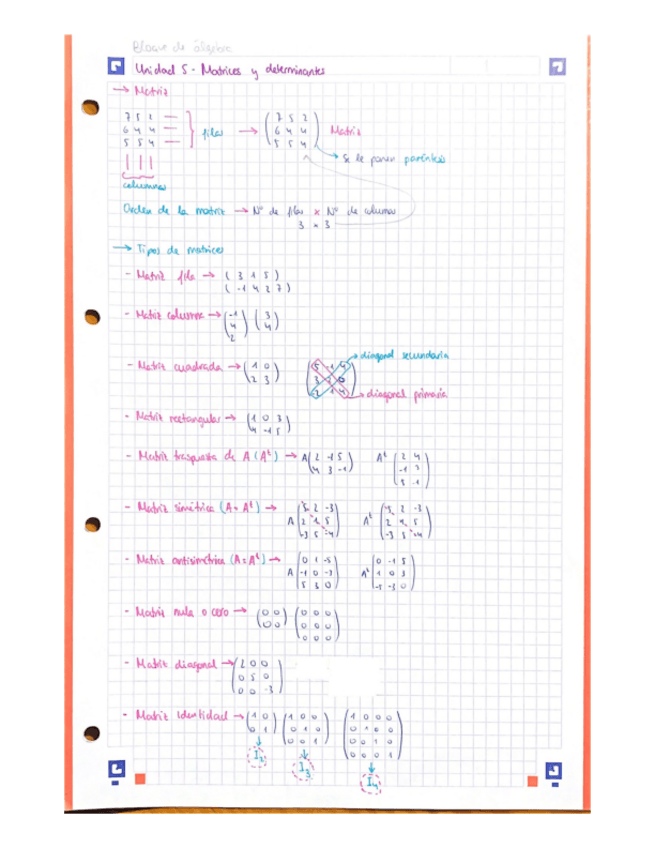 Bloque de álgebra
Unidad 5 - Matrices y determinantes
→ Matriz
7 5 2
6 4 4 } filas → ( 7 5 2 / 6 4 4 / 5 5 4 ) Matriz
5 5 4
→ Se le ponen paréntesis
columnas
Orden de la matriz → Nº de filas x Nº de columnas
3 x 3
→ Tipos de matrices
- Matriz fila → ( 3 1 5 )
( -1 4 2 7 )
- Matriz columna → ( -1 / 4 / 2 ) ( 3 / 4 )
→ diagonal secundaria
- Matriz cuadrada → ( 1 0 / 2 3 )
→ diagonal primaria
- Matriz rectangular → ( 1 0 3 / 4 -1 5 )
- Matriz traspuesta de A (Aᵗ) → A ( 2 -1 5 / 4 3 -1 ) Aᵗ
- Matriz simétrica (A = Aᵗ) → A ( 3 2 -3 / 2 1 5 / -3 5 -4 ) Aᵗ
- Matriz antisimétrica (A = Aᵗ) → A ( 0 1 -5 / -1 0 -3 / 5 3 0 ) Aᵗ ( 0 -1 5 / 1 0 3 / -5 -3 0 )
- Matriz nula o cero → ( 0 0 / 0 0 ) ( 0 0 0 / 0 0 0 / 0 0 0 )
- Matriz diagonal → ( 2 0 0 / 0 5 0 / 0 0 -3 )
- Matriz identidad → ( 1 0 / 0 1 ) ( 1 0 0 / 0 1 0 / 0 0 1 ) ( 1 0 0 0 / 0 1 0 0 / 0 0 1 0 / 0 0 0 1 )
I₂ I₃ I₄